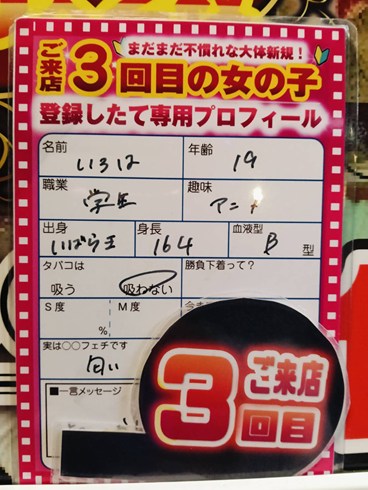 まだまだ不慣れな大体新規！
ご来店3回目の女の子
登録したて専用プロフィール
名前 いろは 年齢 19
職業 学生 趣味 アニメ
出身 いばら王 身長 164 血液型 B 型
タバコは 勝負下着って？
吸う 吸わない
S度 M度
%
実は○○フェチです
匂い
■一言メッセージ
3 ご来店
回目